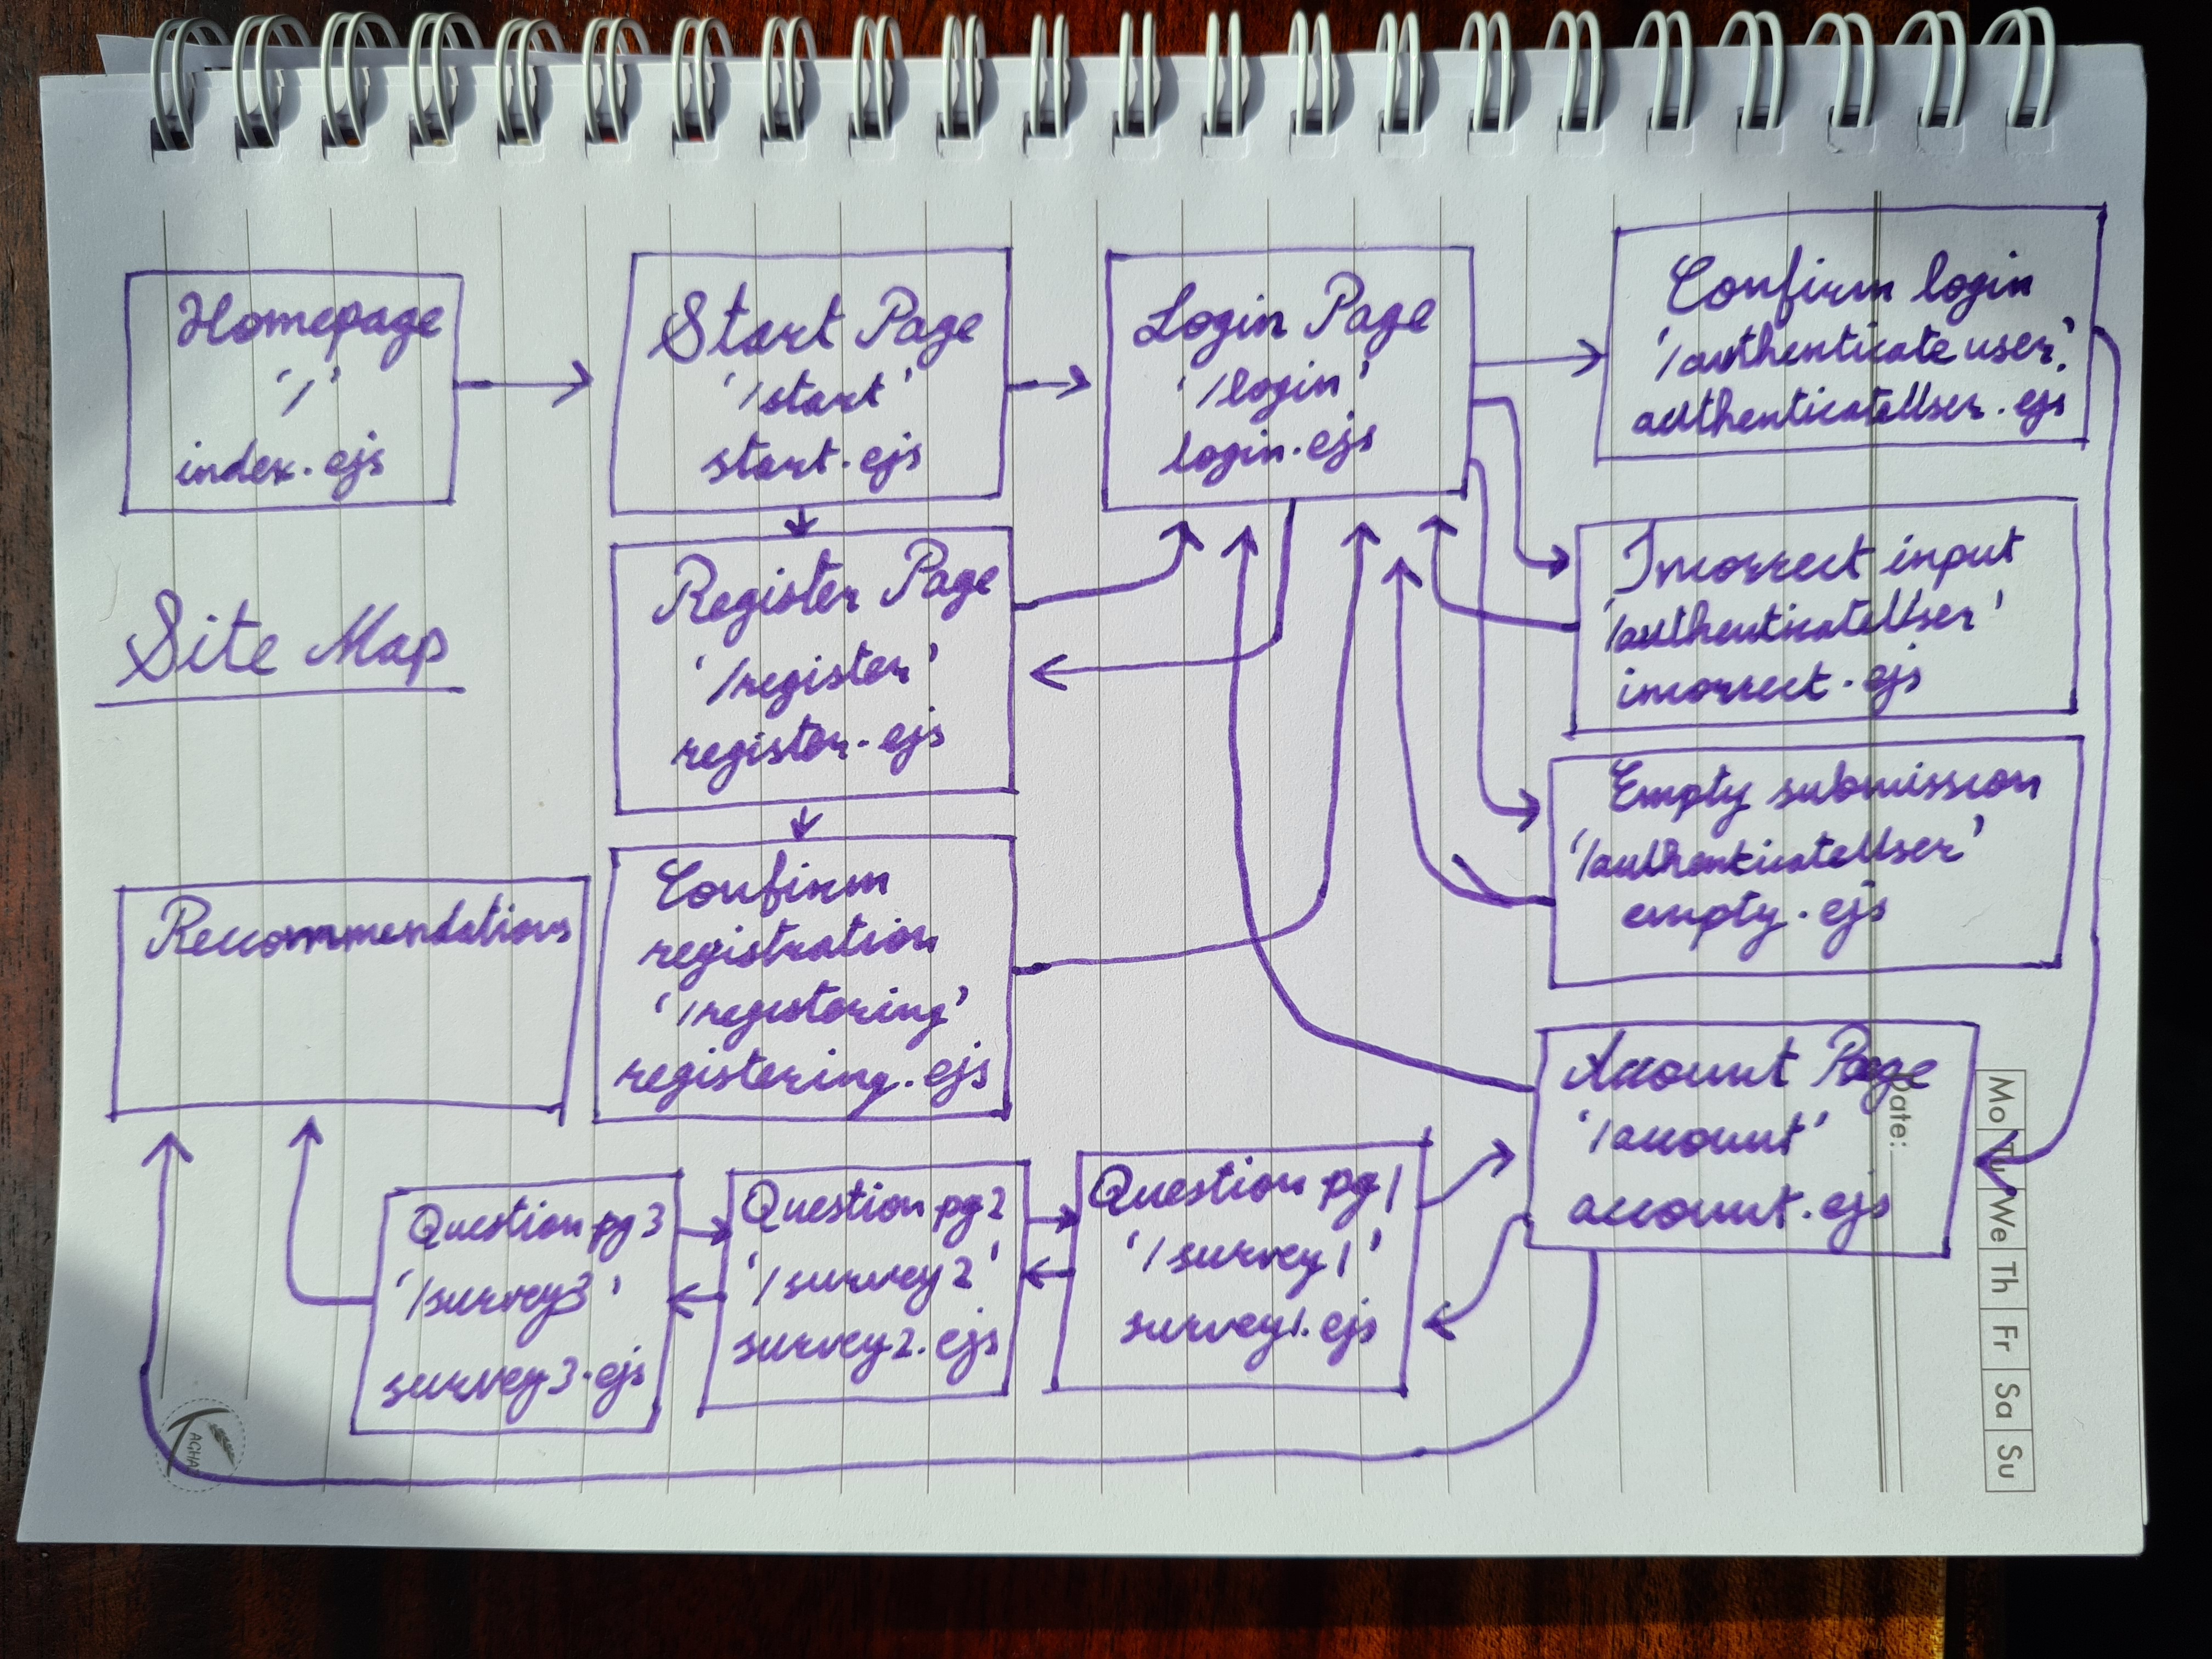 Homepage
'/'
index.ejs
Start Page
'/start'
start.ejs
Login Page
'/login'
login.ejs
Confirm login
'/authenticateuser'
authenticateUser.ejs
Site Map
Register Page
'/register'
register.ejs
Incorrect input
'/authenticateUser'
incorrect.ejs
Recommendations
Confirm
registration
'/registering'
registering.ejs
Empty submission
'/authenticateUser'
empty.ejs
Question pg 3
'/survey3'
survey3.ejs
Question pg 2
'/survey2'
survey2.ejs
Question pg 1
'/survey1'
survey1.ejs
Account Page
'/account'
account.ejs
Date:
Mo Tu We Th Fr Sa Su